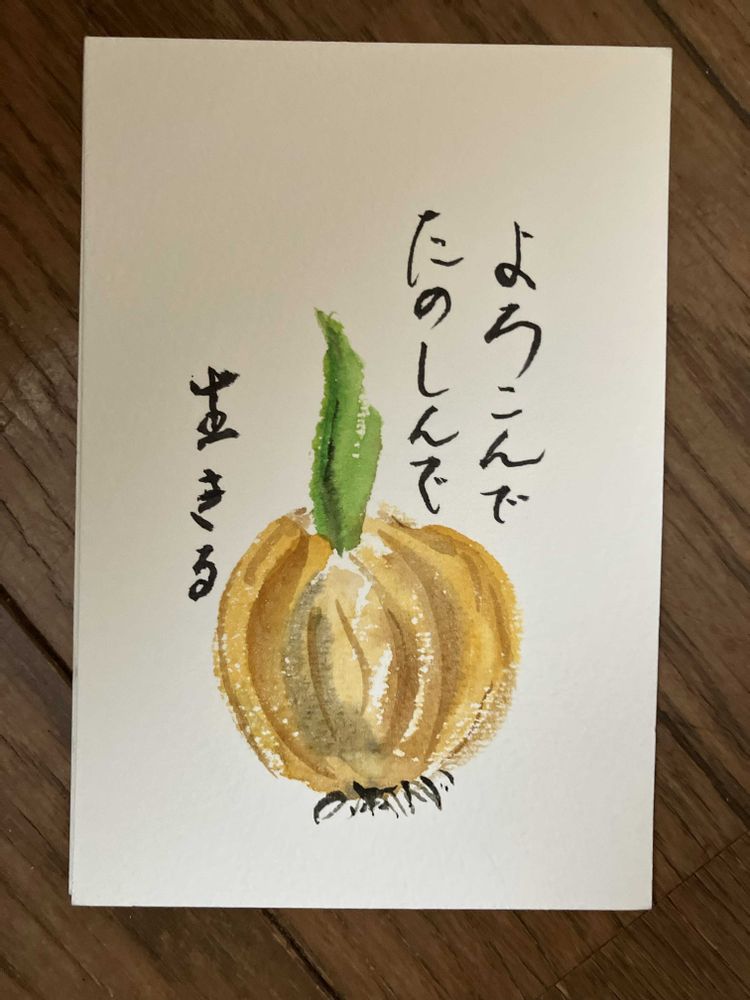 よろこんで
たのしんで
生きる